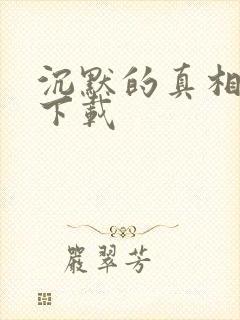 沉默的真相
下载
严翠芳